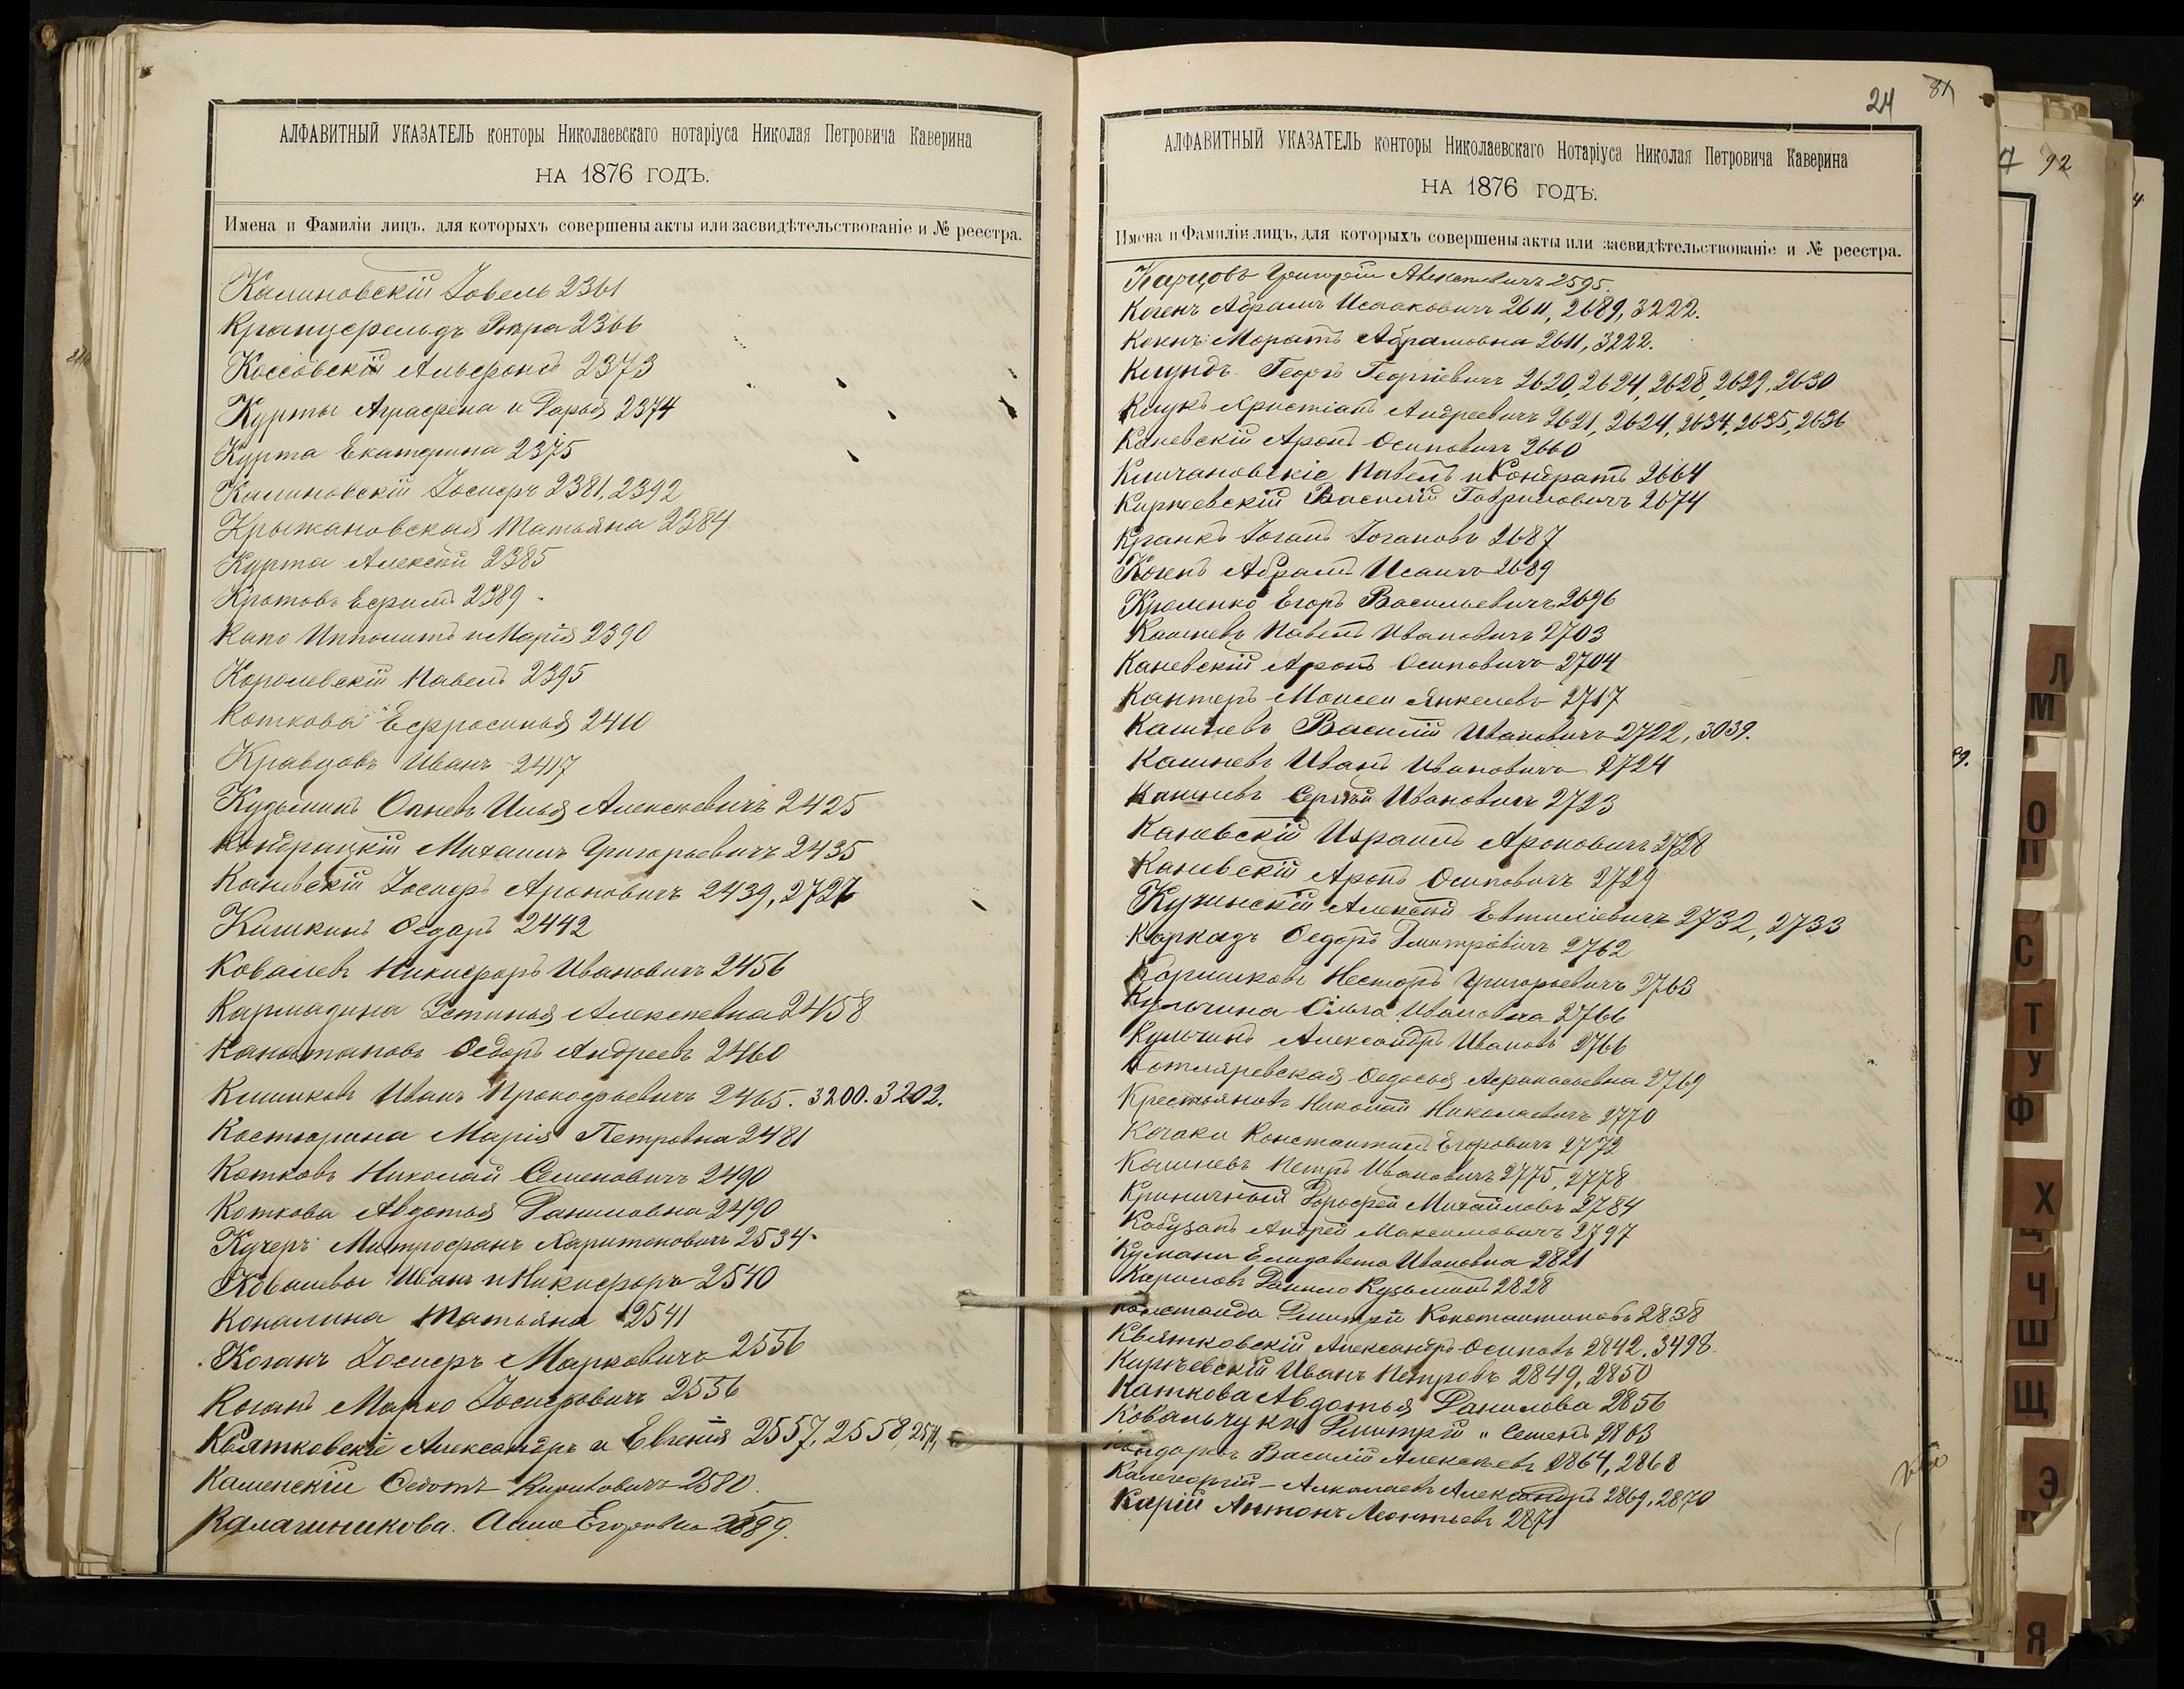 АЛФАВИТНЫЙ УКАЗАТЕЛЬ конторы Николаевскаго нотаріуса Николая Петровича Каверина
НА 1876 ГОДЪ.
Имена и Фамиліи лицъ, для которыхъ совершены акты или засвидѣтельствованіе и № реестра.
Калиновскій Іовель 2361
Кранцфельдъ 2366
Коссовскій Альфонсъ 2373
Курты Аграфена и Дарья 2374
Курта Екатерина 2375
Калиновскій Іосифъ 2381, 2392
Крыжановская Татьяна 2384
Курта Алексѣй 2385
Кротовъ Ефимъ 2389
Капо Ипполитъ и Марія 2390
Королевскій Павелъ 2395
Коткова Ефросинья 2410
Кравцовъ Иванъ 2417
Кузьминъ Илья Алексѣевичъ 2425
Кондрацкій Михаилъ Григорьевичъ 2435
Каневскій Іосифъ Ароновичъ 2439, 2727
Кишкинъ Ѳедоръ 2442
Ковалевъ Никифоръ Ивановичъ 2456
Кармадина Устинья Алексѣевна 2458
Канатановъ Ѳедоръ Андреевъ 2460
Климковъ Иванъ Прокофьевичъ 2465. 3200. 3202.
Костюрина Марія Петровна 2481
Котковъ Николай Семеновичъ 2490
Коткова Авдотья Даниловна 2490
Кучеръ Митрофанъ Харитоновичъ 2534
Ковалевы Иванъ и Никифоръ 2540
Коналина Татьяна 2541
Коганъ Іосифъ Марковичъ 2556
Коганъ Марко Іосифовичъ 2556
Квятковскіе Александръ и Евгенія 2557, 2558,
Каменскій Ѳедотъ 2580.
Калачникова. Анна Егоровна 2589.
24
АЛФАВИТНЫЙ УКАЗАТЕЛЬ конторы Николаевскаго Нотаріуса Николая Петровича Каверина
НА 1876 ГОДЪ.
Имена и Фамиліи лицъ, для которыхъ совершены акты или засвидѣтельствованіе и № реестра.
Карцовъ Григорій Алексѣевичъ 2595.
Когенъ Абрамъ Исааковичъ 2611, 2689, 3222.
Абрамовна 2611, 3222.
Клундъ Георгъ Георгіевичъ 2620, 2624, 2628, 2629, 2630
Клукъ Христіанъ Андреевичъ 2621, 2624, 2634, 2635, 2636
Каневскій Аронъ Осиповичъ 2660
Климановскіе Павелъ и Кондратъ 2664
Киржевскій Василій Гавриловичъ 2674
Кранкъ Іоганъ Іогановъ 2687
Когенъ Абрамъ 2689
Кроленко Егоръ Васильевичъ 2696
Кашневъ Павелъ Ивановичъ 2703
Каневскій Аронъ Осиповичъ 2704
Кантеръ Моисей Янкелевъ 2717
Кашневъ Василій Ивановичъ 2722, 3039.
Кашневъ Иванъ Ивановичъ 2724
Кашневъ Сергѣй Ивановичъ 2723
Каневскій Израиль Ароновичъ 2728
Каневскій Аронъ Осиповичъ 2729
Кучинскій Алексѣй 2732, 2733
Каркадъ Ѳедоръ Дмитріевичъ 2762
Коршиковъ Несторъ Григорьевичъ 2763
Кульчина Ольга Ивановна 2766
Кульчинъ Александръ Ивановъ 2766
Котляревская Ѳедосья Афанасьевна 2769
Крестьяновъ Николай Николаевичъ 2770
Кочаки Константинъ Егоровичъ 2772
Кашневъ Петръ Ивановичъ 2775, 2778
Криничный Дорофей Михайловъ 2784
Кобузанъ Андрей Максимовичъ 2797
Кумани Елизавета Ивановна 2821
Кириловъ Данило Кузьминъ 2828
Констанда Дмитрій Константиновъ 2838
Квятковскій Александръ Осиповъ 2842. 3498.
Киржевскій Иванъ Петровъ 2849, 2850
Каткова Авдотья Данилова 2856
Ковальчуки Дмитрій и Семенъ 2863
Кондаревъ Василій Алексѣевъ 2864, 2868
Александръ 2869, 2870
Карій Антонъ Леонтьевъ 2871
92
Л
М
О
П
С
Т
У
Ф
Х
Ч
Ш
Щ
Э
Я